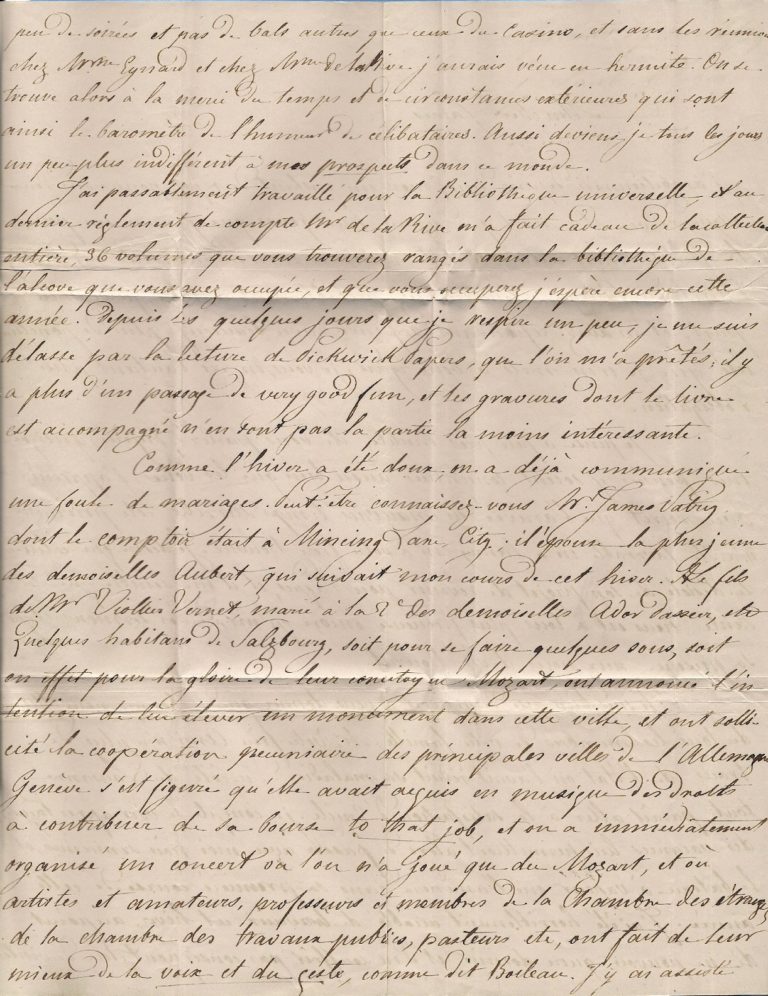 peu de soirées et pas de bals autres que ceux du Casino, et sans les réunions
chez Mme Eynard et chez Mme de la Rive j'aurais vécu en hermite. On se
trouve alors à la merci du temps et de circonstances extérieures qui sont
ainsi le baromètre de l'humeur de célibataires. Aussi deviens-je tous les jours
un peu plus indifférent à mes prospects dans ce monde.
J'ai passablement travaillé pour la Bibliothèque universelle, et au
dernier règlement de compte Mr de la Rive m'a fait cadeau de la collection
entière, 36 volumes que vous trouverez rangés dans la bibliothèque de
l'alcove que vous avez occupée, et que vous occuperez j'espère encore cette
année. Depuis les quelques jours que je respire un peu, je me suis
délassé par la lecture de Pickwick Papers, que l'on m'a prêtés; il y
a plus d'un passage de very good fun, et les gravures dont le livre
est accompagné n'en sont pas la partie la moins intéressante.
Comme l'hiver a été doux, on a déjà communiqué
une foule de mariages. Peut-être connaissez-vous Mr James
dont le comptoir était à Mincing Lane, City; il épouse la plus jeune
des demoiselles Aubert, qui suivait mon cours de cet hiver. Le fils
de Mr Viollier Vernet, marié à la 2e des demoiselles Ador Dassier, etc
Quelques habitans de Salzbourg, soit pour se faire quelques sous, soit
en effet pour la gloire de leur concitoyen Mozart, ont annoncé l'in
tention de lui élever un monument dans cette ville, et ont solli
cité la coopération pécuniaire des principales villes de l'Allemagne
Genève s'est figuré qu'elle avait acquis en musique des droits
à contribuer de sa bourse to that job, et on a immédiatement
organisé un concert où l'on n'a joué que du Mozart, et où
artistes et amateurs, professeurs et membres de la Chambre des étrangers
de la chambre des travaux publics, pasteurs etc, ont fait de leur
mieux de la voix et du geste, comme dit Boileau. J'y ai assisté